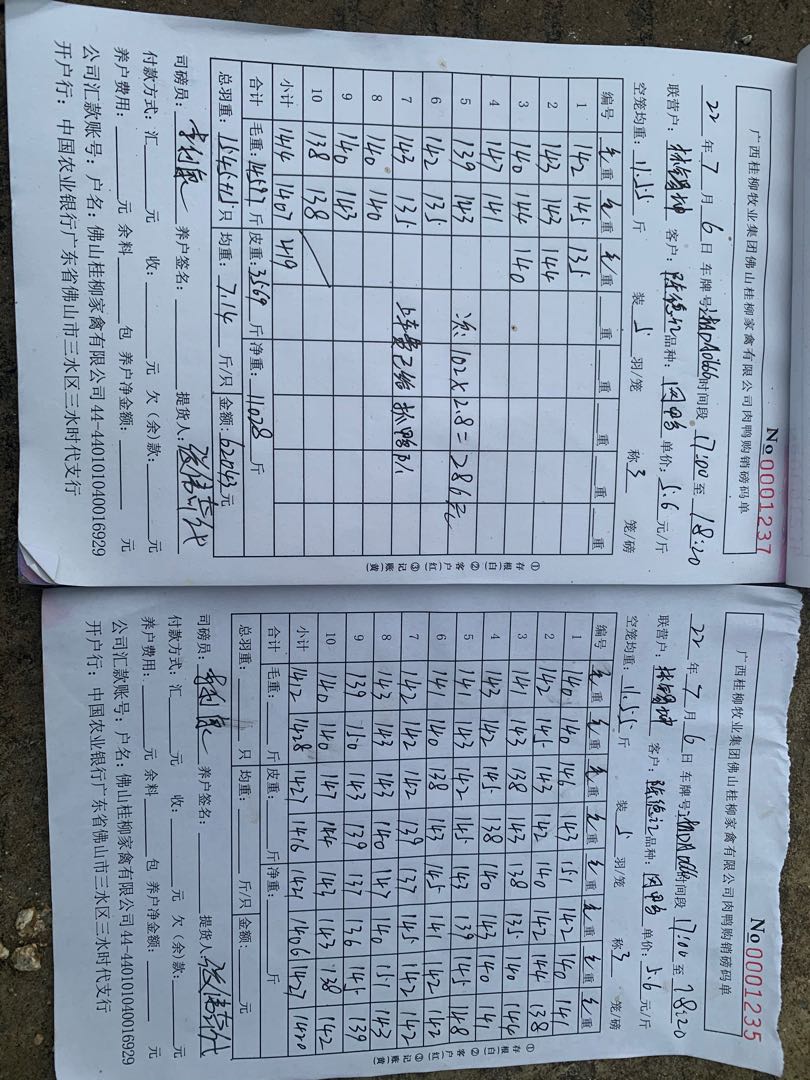 广西桂柳牧业集团佛山桂柳家禽有限公司肉鸭购销磅码单
No 0001237
22 年 7 月 6 日 车牌号: 时间段 17:00 至 18:20
联营户: 林锡坤 客户: 陈德记 品种: 单价: 5.6 元/斤
空笼均重: 11.55 斤 装 5 羽/笼 称 3 笼/磅
编号 毛重 毛重 毛重 重 重 重 重 重
1 142 145 135
2 143 143 144
3 140 144 140
4 147 141
5 139 143 次: 102×2.8=286元
6 142 135
7 143 135 上车费已给 抓鸭队
8 140 140
9 140 143
10 138 138
小计 1414 1407 419
合计 毛重: 14597 斤 皮重: 3569 斤 净重: 11028 斤
总羽重: 只 均重: 7.14 斤/只 金额: 62043 元
司磅员: 养户签名: 提货人:
付款方式: 汇 元 收: 元 欠(余)款: 元
养户费用: 元 余料 包 养户净金额: 元
公司汇款账号: 户名: 佛山桂柳家禽有限公司 44-440101040016929
开户行: 中国农业银行广东省佛山市三水区三水时代支行
①存根(白) ②客户(红) ③记账(黄)
广西桂柳牧业集团佛山桂柳家禽有限公司肉鸭购销磅码单
No 0001235
22 年 7 月 6 日 车牌号: 时间段 17:00 至 18:20
联营户: 林锡坤 客户: 陈德记 品种: 单价: 5.6 元/斤
空笼均重: 11.55 斤 装 5 羽/笼 称 3 笼/磅
编号 毛重 毛重 毛重 毛重 毛重 毛重 毛重 毛重
1 140 140 146 143 151 142 140 141
2 142 145 143 142 140 142 144 138
3 141 143 138 143 138 135 140 144
4 143 142 145 138 140 143 140 141
5 141 143 142 145 143 139 145 148
6 141 140 138 143 145 141 142 142
7 142 142 142 139 137 145 142 142
8 143 143 143 140 147 140 151 143
9 139 150 143 139 137 136 145 139
10 140 140 147 144 143 143 138 142
小计 1412 1428 1427 1416 1421 1406 1427 1420
合计 毛重: 斤 皮重: 斤 净重: 斤
总羽重: 只 均重: 斤/只 金额: 元
司磅员: 养户签名: 提货人:
付款方式: 汇 元 收: 元 欠(余)款: 元
养户费用: 元 余料 包 养户净金额: 元
公司汇款账号: 户名: 佛山桂柳家禽有限公司 44-440101040016929
开户行: 中国农业银行广东省佛山市三水区三水时代支行
①存根(白) ②客户(红) ③记账(黄)